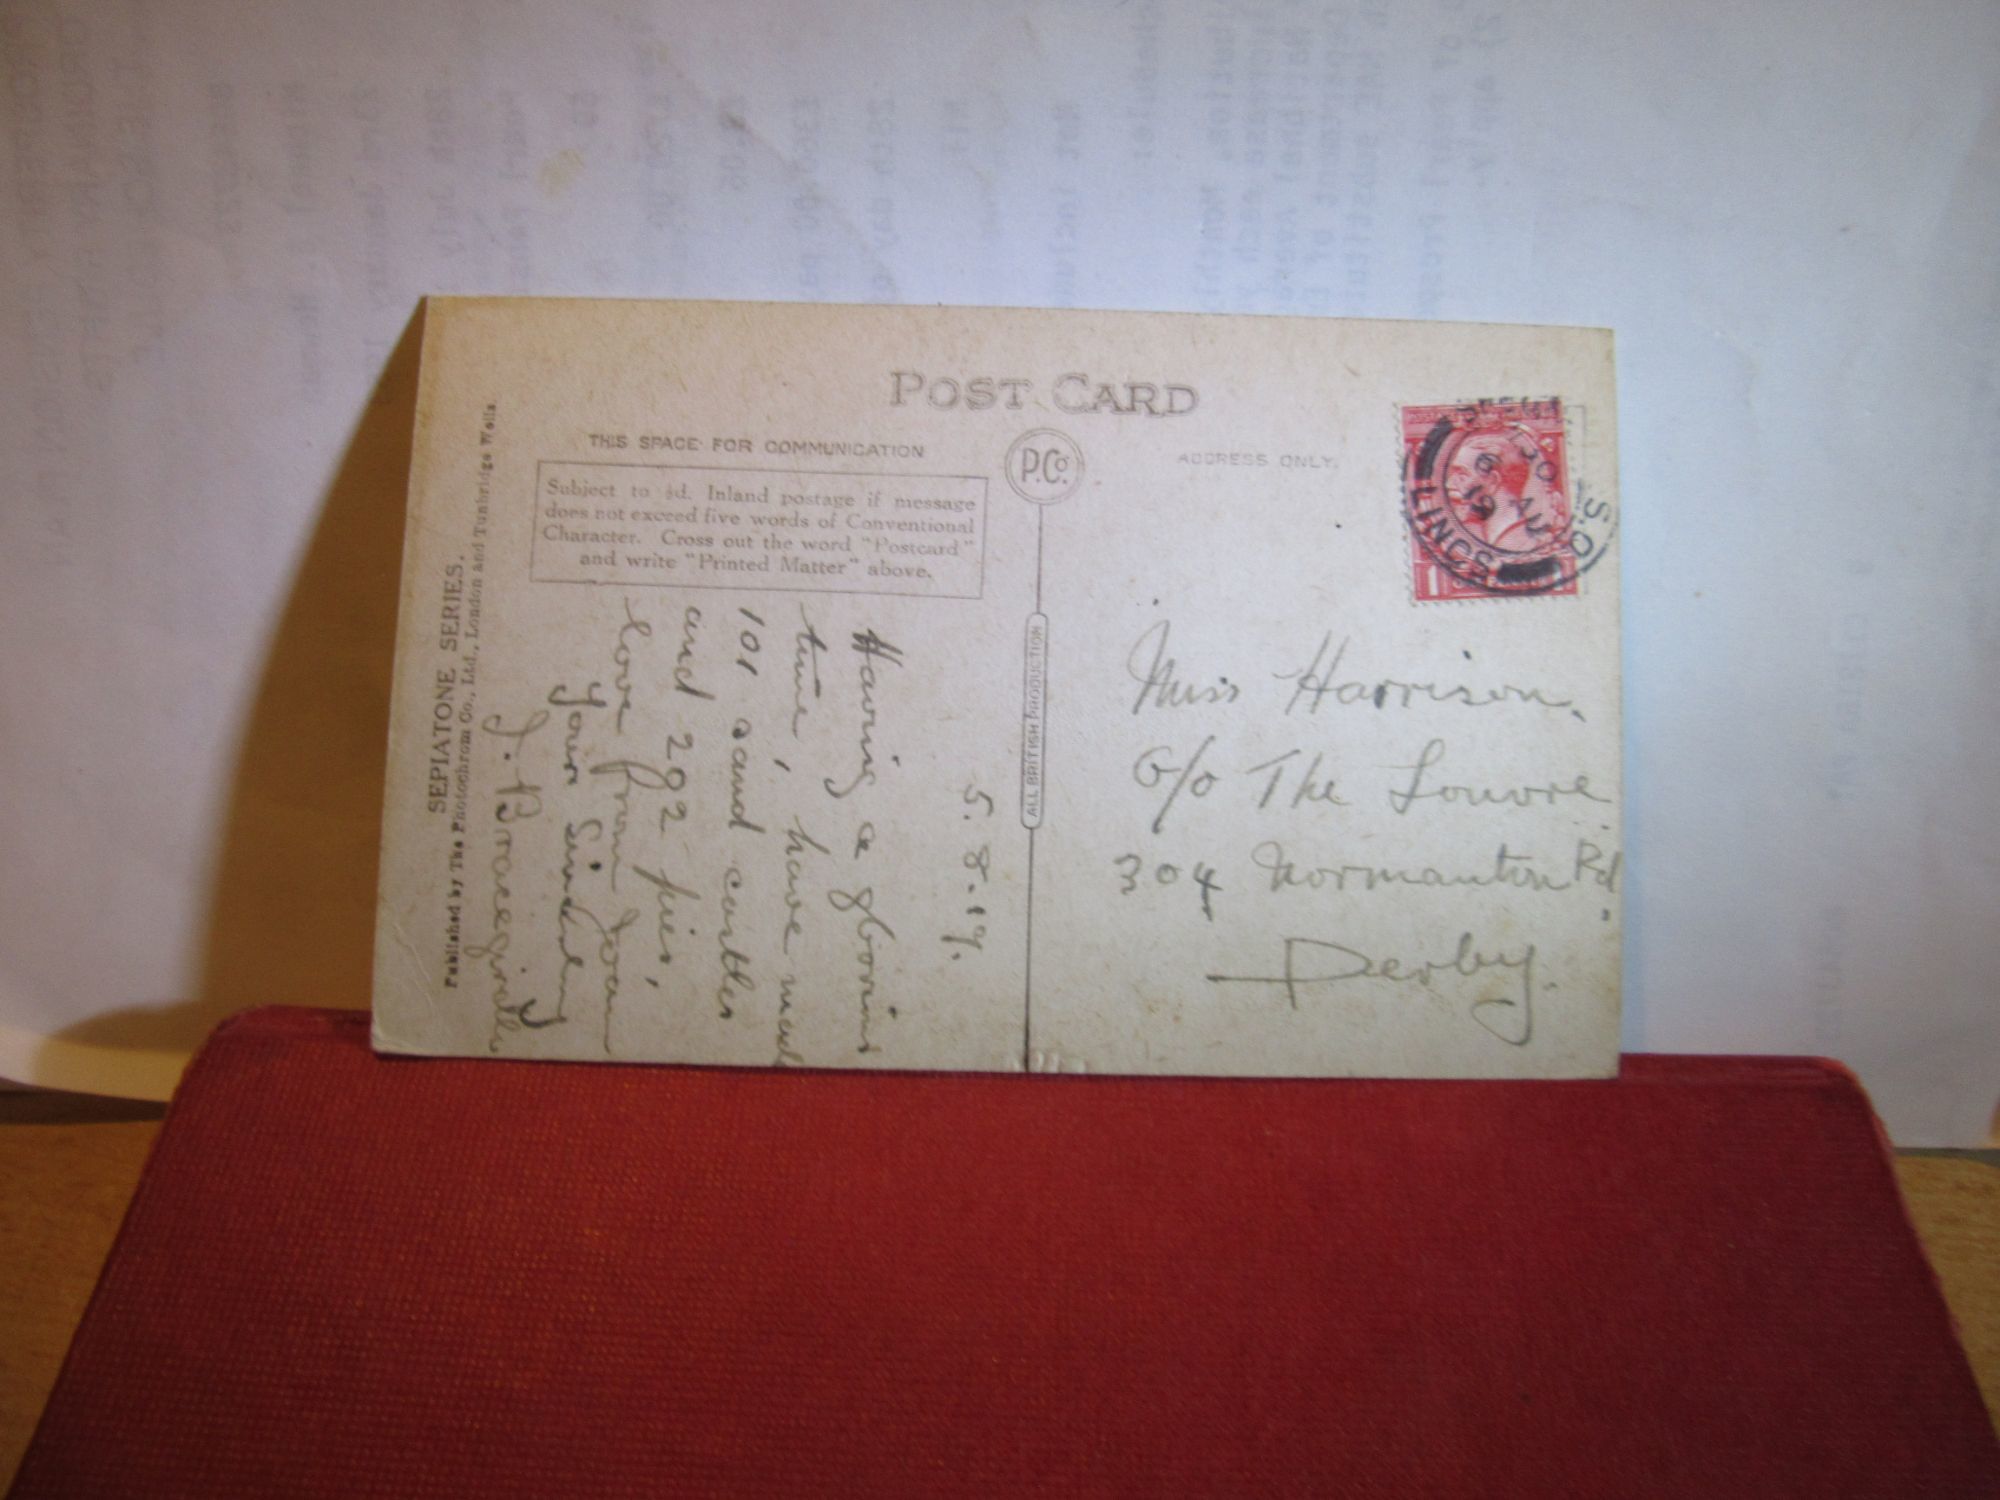 POST CARD
THIS SPACE FOR COMMUNICATION
ADDRESS ONLY.
P.Co.
Subject to ½d. Inland postage if message
does not exceed five words of Conventional
Character. Cross out the word "Postcard"
and write "Printed Matter" above.
ALL BRITISH PRODUCTION
SEPIATONE SERIES.
Published by The Photochrom Co., Ltd., London and Tunbridge Wells.
5.8.19.
Having a glorious
time, have made
101 sand castles
and 292 pies,
love from Joan
Yours Sincerely
J. Bracegirdle
Miss Harrison.
C/o The Louvre
304 Normanton Rd.
Derby.
S.O.
6 AU
19
LINCS
1